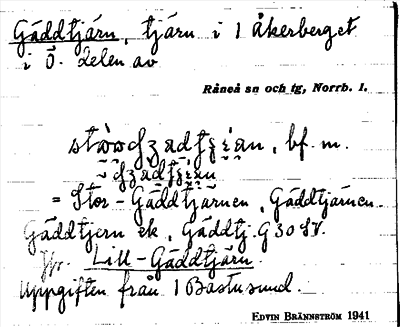 Gäddtjärn, tjärn i 1 Åkerberget
i Ö. delen av
Råneå sn och tg, Norrb. l.
bf. m.
= Stor-Gäddtjärnen, Gäddtjärnen.
Gäddtjern ek, Gäddtj. G 30 SV.
Jfr. Lill-Gäddtjärn.
Uppgiften från 1 Bastusund.
EDVIN BRÄNNSTRÖM 1941